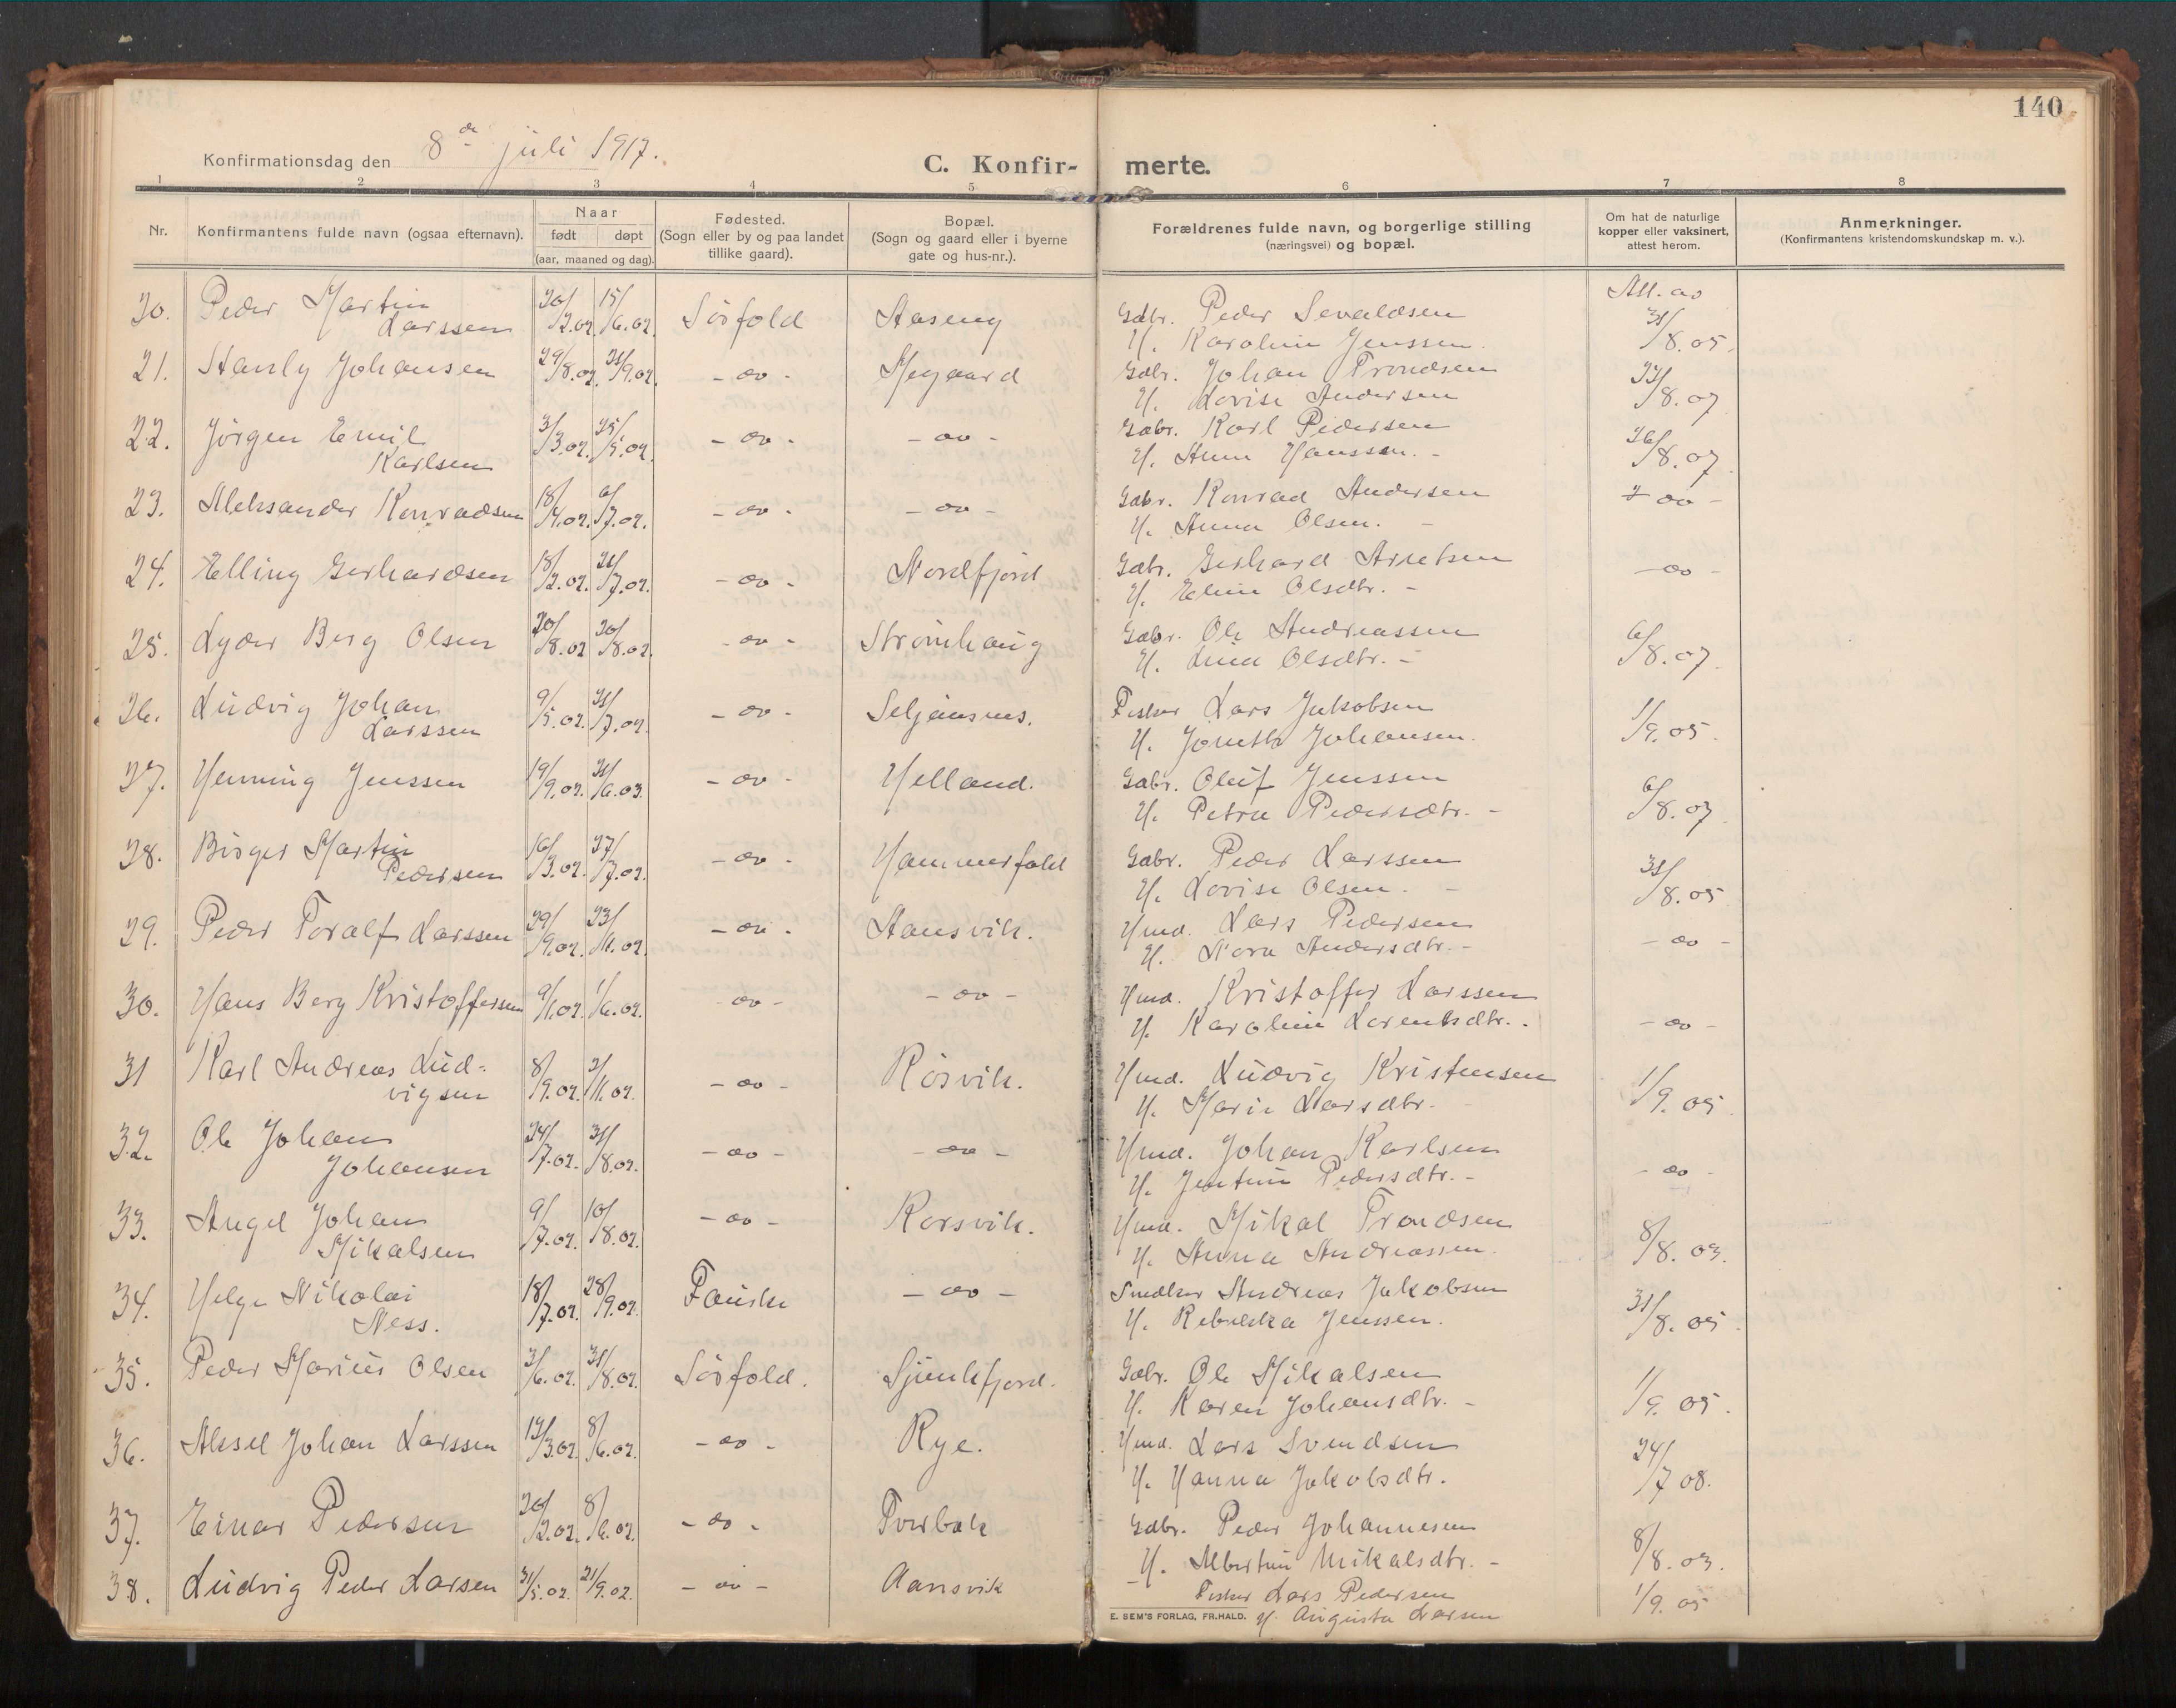 140
Konfirmationsdag den 8de juli 1917.
C. Konfir- merte.
1 2 3 4 5 6 7 8
Nr.
Konfirmantens fulde navn (ogsaa efternavn).
Naar
født døpt
(aar, maaned og dag).
Fødested.
(Sogn eller by og paa landet
tillike gaard).
Bopæl.
(Sogn og gaard eller i byerne
gate og hus-nr.).
Forældrenes fulde navn, og borgerlige stilling
(næringsvei) og bopæl.
Om hat de naturlige
kopper eller vaksinert,
attest herom.
Anmerkninger.
(Konfirmantens kristendomskundskap m. v.).
20. Peder Martin Larssen 20/2.02. 15/6.02. Sörfold Aaseng Gdbr. Peder Sevaldsen Att. av 31/8.05.
H. Karoline Jenssen.
21. Hanly Johansen 29/8.02. 21/9.02. - do - Megaard Gdbr. Johan Trondsen 22/8.07
H. Lovise Andersen
22. Jörgen Emil Karlsen 3/3.02. 25/5.02. - do - - do - Gdbr. Karl Pedersen 26/8.07.
H. Anna Hanssen. -
23. Aleksander Konradsen 18/4.02. 6/7.02. - do - - do - Gdbr. Konrad Andersen - do -
H. Anna Olsen. -
24. Elling Gerhardsen 18/2.02. 21/7.02. - do - Nordfjord Gdbr. Gerhard Arntsen - do -
H. Eline Olsdtr. -
25. Lyder Berg Olsen 20/8.02 30/8.02. - do - Strömhaug Gdbr. Ole Andreassen 6/8.07.
H. Lina Olsdtr. -
26. Ludvig Johan Larssen 9/5.02. 21/7.02. - do - Seljeasnes. Fisker Lars Jakobsen 1/9.05.
H. Jonette Johansen.
27. Henning Jenssen 19/9.02. 21/6.03. - do - Helland. Gdbr. Oluf Jenssen 6/8.07.
H. Petra Pedersdtr. -
28. Birger Martin Pedersen 16/3.02. 27/7.02. - do - Hammerfald Gdbr. Peder Larssen 31/8.05
H. Lovise Olsen. -
29. Peder Toralf Larssen 29/9.02. 23/11.02. - do - Aansvik. Hmd. Lars Pedersen - do -
H. Nora Andersdtr. -
30. Hans Berg Kristoffersen 9/1.02. 1/6.02. - do - - do - Hmd. Kristoffer Larssen - do -
H. Karoline Lorentsdtr. -
31 Karl Andreas Lud- vigsen 8/9.02. 2/11.02. - do - Rösvik. Hmd. Ludvig Kristensen 1/9.05.
H. Marie Larsdtr.
32. Ole Johan Johansen 24/7.02. 31/8.02. - do - - do - Hmd. Johan Karlsen - do -
H. Jentine Pedersdtr. -
33. Angel Johan Mikalsen 9/7.02. 10/8.02. - do - Korsvik. Hmd. Mikal Trondsen 8/8.03.
H. Anna Andreassen.
34. Helge Nikolai Ness. 18/7.02. 28/9.02. Fauske - do - Snedker Andreas Jakobsen 31/8.05.
H. Rebekka Jenssen.
35. Peder Marius Olsen 3/6.02. 31/8.02. Sörfold. Sjunkfjord. Gdbr. Ole Mikalsen 1/9.05.
H. Karen Johansdtr. -
36. Aksel Johan Larssen 12/3.02. 8/6.02. - do - Rye. Hmd. Lars Svendsen 24/7 08.
H. Hanna Jakobsdtr.
37. Einar Pedersen 20/2.02. 8/6.02. - do - Tverbak Gdbr. Peder Johannesen 8/8.03.
H. Albertine Mikalsdtr. -
38. Ludvig Peder Larsen 31/5.02. 21/9.02. - do - Aansvik Fisker Lars Pedersen 1/9.05
E. SEM'S FORLAG, FR.HALD. H. Augusta Larsen